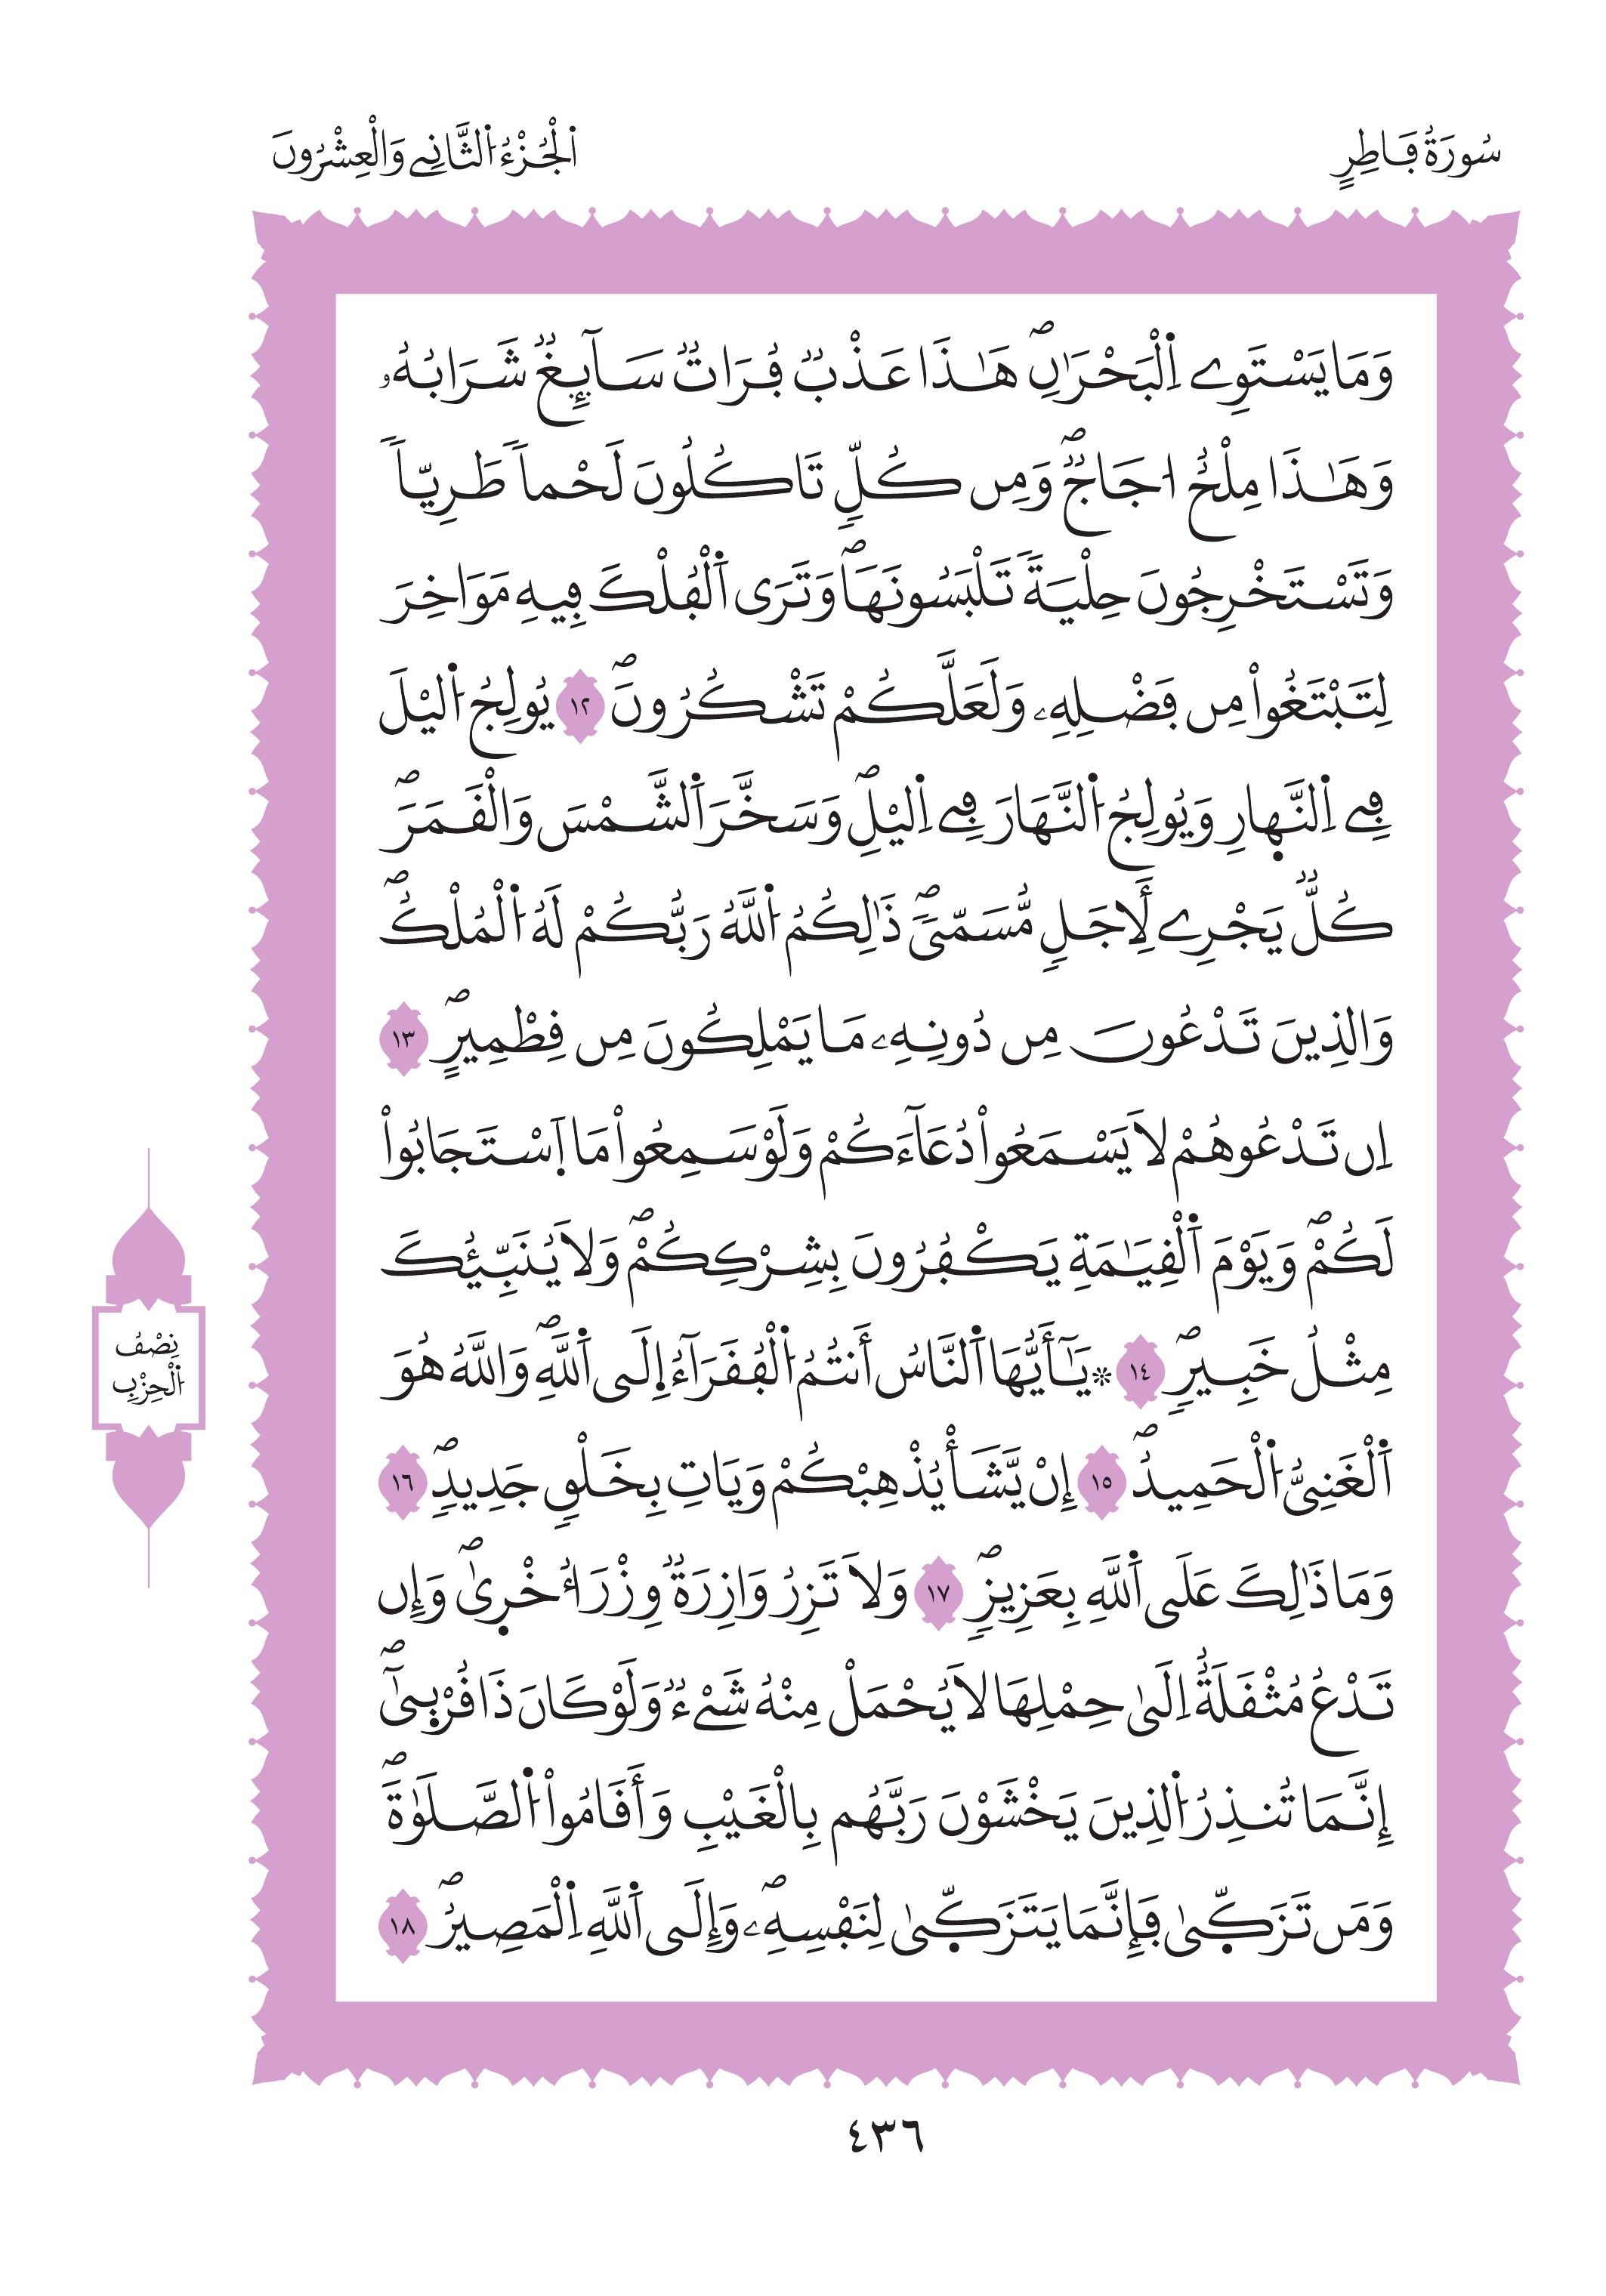 سُورَةُ فَاطِرٍ
اَلْجُزْءُ اُلثَّانِے وَالْعِشْرُونَ
وَمَا يَسْتَوِے اِ۬لْبَحْرَٰنِۖ هَٰذَا عَذْبٞ فُرَاتٞ سَآئِغٞ شَرَابُهُۥ
وَهَٰذَا مِلْحٌ ا۟جَاجٞۖ وَمِن كُلّٖ تَاكُلُونَ لَحْماٗ طَرِيّاٗ
وَتَسْتَخْرِجُونَ حِلْيَةٗ تَلْبَسُونَهَاۖ وَتَرَى اَ۬لْفُلْكَ فِيهِ مَوَاخِرَ
لِتَبْتَغُواْ مِن فَضْلِهِۦ وَلَعَلَّكُمْ تَشْكُرُونَۖ ١٢ يُولِجُ اُ۬ليْلَ
فِے اِ۬لنَّهارِ وَيُولِجُ اُ۬لنَّهَارَ فِے اِ۬ليْلِۖ وَسَخَّرَ اَ۬لشَّمْسَ وَالْقَمَرَۖ
كُلّٞ يَجْرِے لِأَجَلٖ مُّسَمّيٗۖ ذَٰلِكُمُ اُ۬للَّهُ رَبُّكُمْ لَهُ اُ۬لْمُلْكُۖ
وَالذِينَ تَدْعُونَ مِن دُونِهِۦ مَا يَمْلِكُونَ مِن قِطْمِيرٍۖ ١٣
اِن تَدْعُوهُمْ لَا يَسْمَعُواْ دُعَآءَكُمْ وَلَوْ سَمِعُواْ مَا اَ۪سْتَجَابُواْ
لَكُمْۖ وَيَوْمَ اَ۬لْقِيَٰمَةِ يَكْفُرُونَ بِشِرْكِكُمْۖ وَلَا يُنَبِّئُكَ
مِثْلُ خَبِيرٖۖ ١٤ ۞ يَٰٓأَيُّهَا اَ۬لنَّاسُ أَنتُمُ اُ۬لْفُقَرَآءُ اِ۪لَى اَ۬للَّهِۖ وَاللَّهُ هُوَ
اَ۬لْغَنِىُّ اُ۬لْحَمِيدُۖ ١٥ إِنْ يَّشَأْ يُذْهِبْكُمْ وَيَاتِ بِخَلْقٖ جَدِيدٖۖ ١٦
وَمَا ذَٰلِكَ عَلَى اَ۬للَّهِ بِعَزِيزٖۖ ١٧ وَلَا تَزِرُ وَازِرَةٞ وِزْرَ أُخْر۪ىٰۖ وَإِن
تَدْعُ مُثْقَلَةٌ اِلَىٰ حِمْلِهَا لَا يُحْمَلْ مِنْهُ شَےْءٞ وَلَوْ كَانَ ذَا قُرْب۪ىٰٓۖ
إِنَّمَا تُنذِرُ اُ۬لذِينَ يَخْشَوْنَ رَبَّهُم بِالْغَيْبِ وَأَقَامُواْ اُ۬لصَّلَوٰةَۖ
وَمَن تَزَكّ۪ىٰ فَإِنَّمَا يَتَزَكّ۪ىٰ لِنَفْسِهِۦۖ وَإِلَى اَ۬للَّهِ اِ۬لْمَصِيرُۖ ١٨
نِصْفُ
اُ۬لْحِزْبِ
٤٣٦